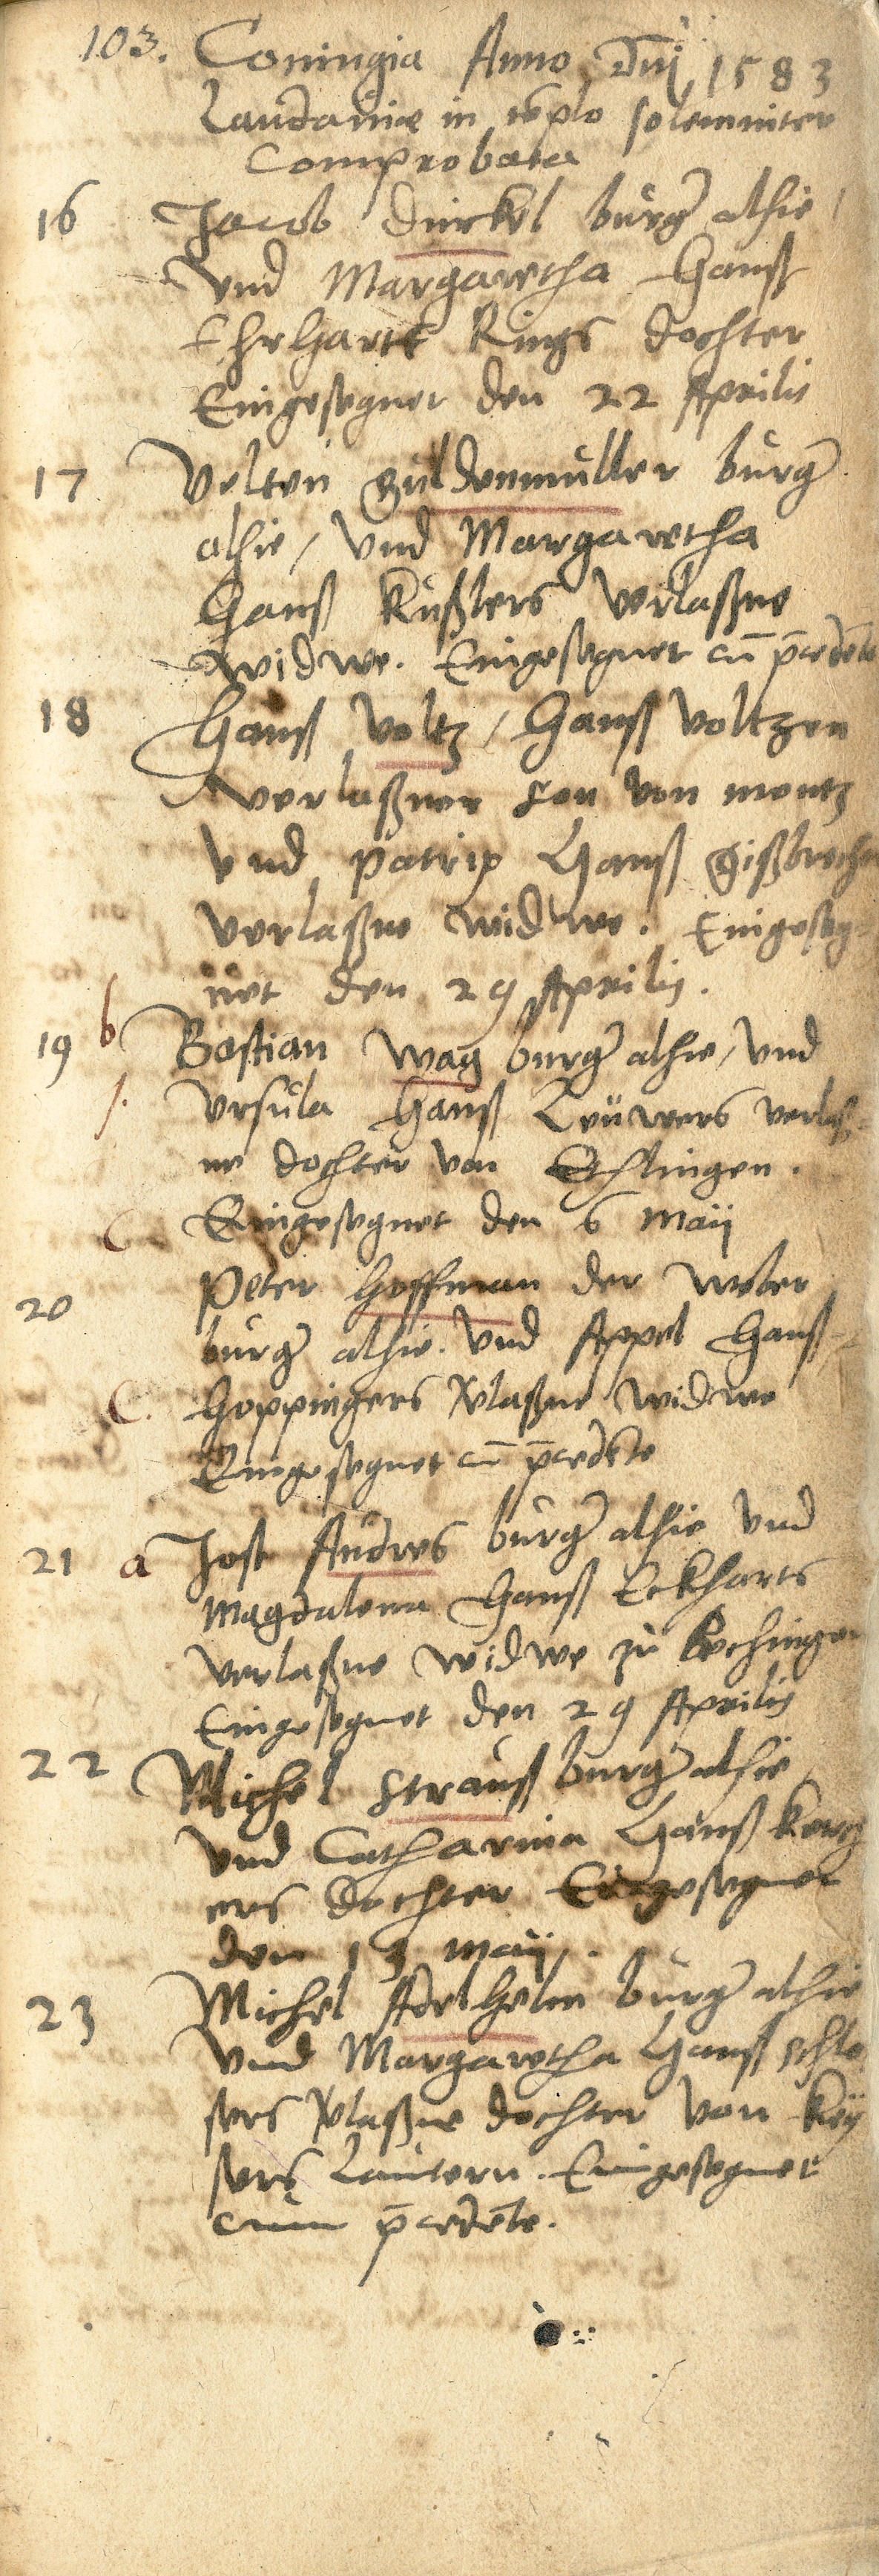 103. Coniugia Anno Dnj 1583
Landaviæ in tēplo solemniter
Comprobata
16 Jacob Dürkel burgʼ alhie /
Vnd Margaretha Hanß
Ehrharts Rings dochter
Eingesegnet den 22 Aprilis
17 Velten Güldenmüller bürgʼ
alhie / Vnd Margaretha
Hanß Küßlers verlaßne
Widwe. Eingesegnet cū p̄cedēte
18 Hanß Voltz / Hanß Voltzen
verlaßner son von mentz
Vnd patrix Hanß Gißbrecht
verlaßne widwe. Eingeseg
net den 29 Aprilis.
19 b Bastian Wag burgʼ alhie / Vnd
Vrsula Hanß Leüwers verlaß=
ne dochter von Ethlingen.
C Eingesegnet den 6 Maij
20 Peter Hoffman der Weber
burgʼ alhie. Vnd Appel Hanß
C. Hoppingers v̄laßne widwe
Eingesegnet cū p̄cedēte
21 a Jost Andres burgʼ alhie Vnd
Magdalena Hanß Eckharts
verlaßne widwe zu Bechingen
Eingesegnet den 29 Aprilis
22 Michel Strauß burgʼ alhie
Vnd Catharina Hanß
ers dochter Eingesegnet
den 13 Maij.
23 Michel Adelhelm burgʼ alhie
Vnd Margaretha Hanß schlo
sers v̄laßne dochter von Key
sers Lautern. Eingesegnet
cum p̄cedēte.